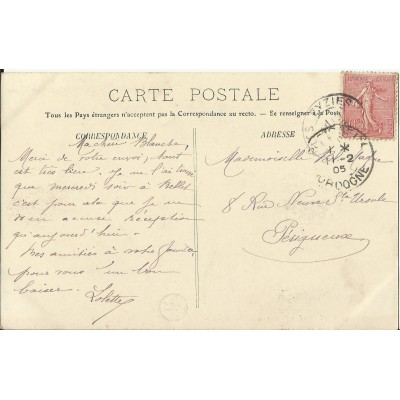 CARTE POSTALE
Tous les Pays étrangers n'acceptent pas la Correspondance au recto. — Se renseigner à la Poste
CORRESPONDANCE
Ma chère Blanche,
Merci de votre envoi, tout
est très bien. Je ne l'ai
que mercredi soir à
c'est pour cela que je
accuse réception
qu'aujourd'hui.
Mes amitiés à votre
pour vous un bon
baiser. Lolotte
ADRESSE
Mademoiselle
8 Rue Neuve Ste Ursule
Périgueux
EYZIES
2
05
DORDOGNE